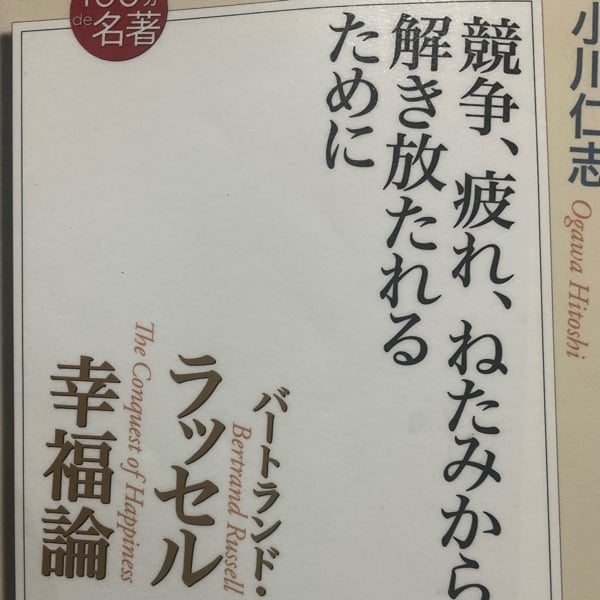 100分
de名著
小川仁志
Ogawa Hitoshi
競争、疲れ、ねたみから
解き放たれる
ために
バートランド・
Bertrand Russell
ラッセル
The Conquest of Happiness
幸福論